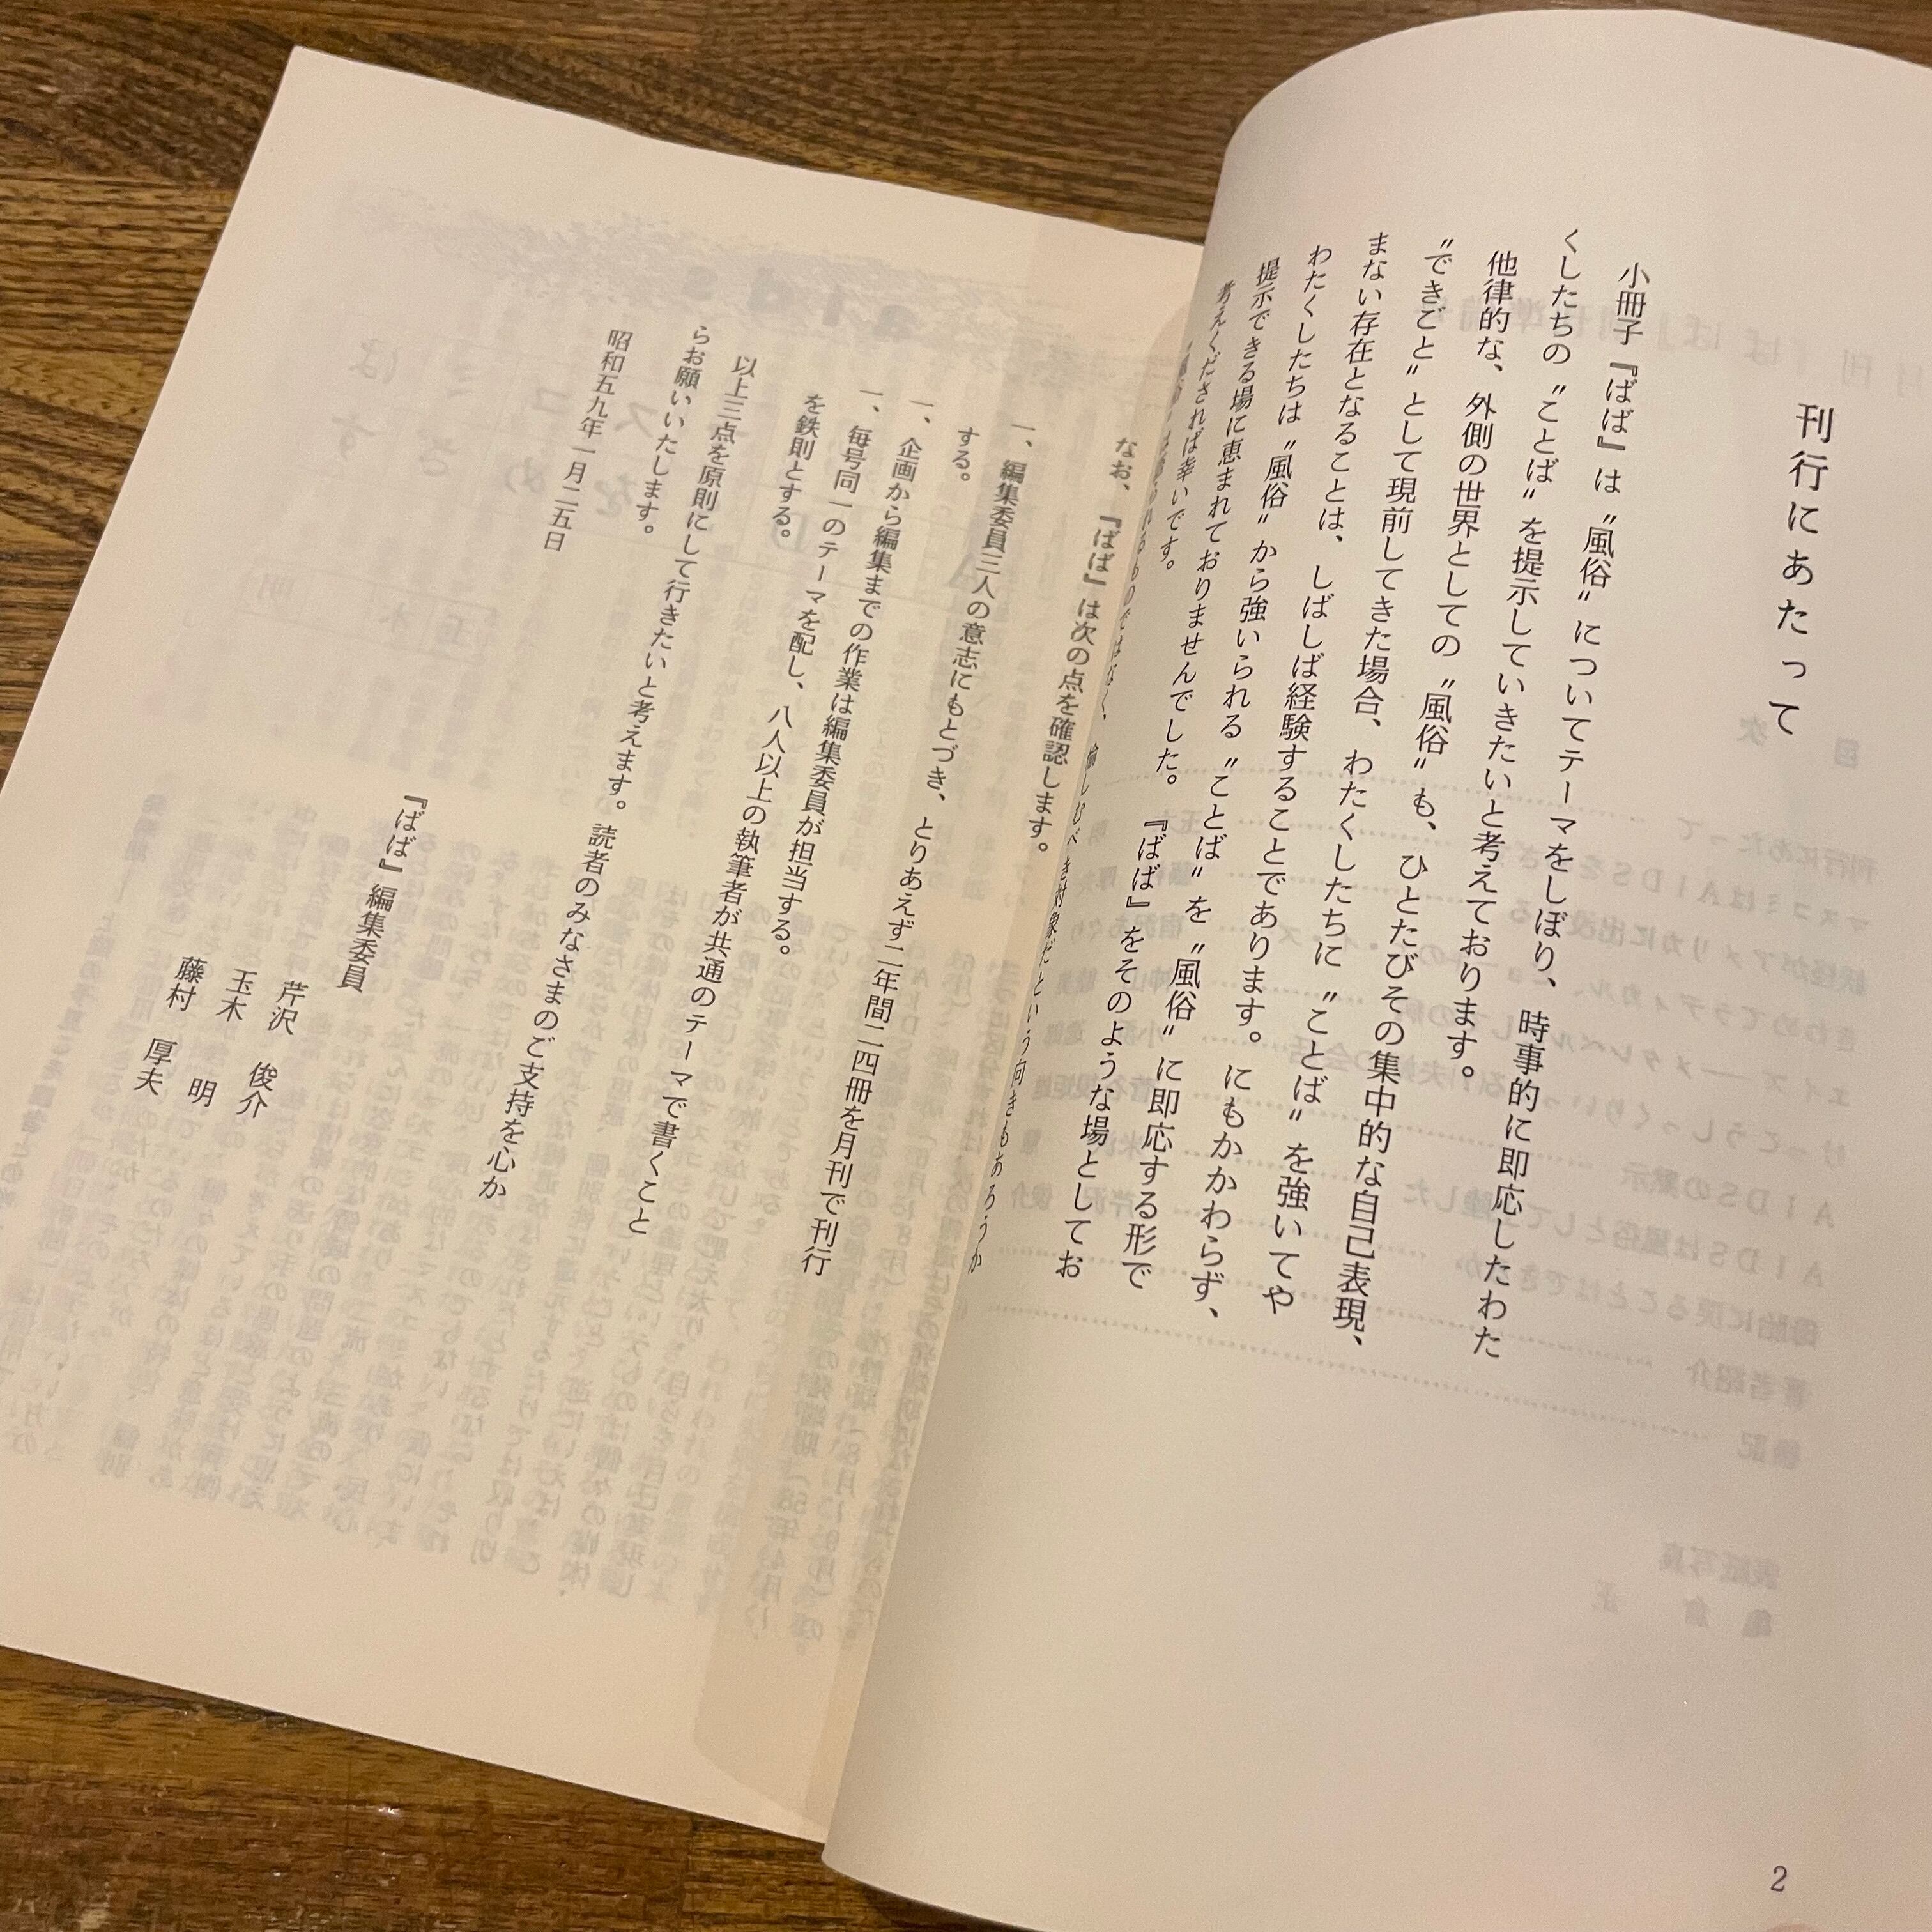 刊行にあたって
小冊子『ばば』は〝風俗〟についてテーマをしぼり、時事的に即応したわた
くしたちの〝ことば〟を提示していきたいと考えております。
他律的な、外側の世界としての〝風俗〟も、ひとたびその集中的な自己表現、
〝できごと〟として現前してきた場合、わたくしたちに〝ことば〟を強いてや
まない存在となることは、しばしば経験することであります。にもかかわらず、
わたくしたちは〝風俗〟から強いられる〝ことば〟を〝風俗〟に即応する形で
提示できる場に恵まれておりませんでした。『ばば』をそのような場としてお
考えくだされば幸いです。
ものではなく、愉しむべき対象だという向きもあろうか
なお、『ばば』は次の点を確認します。
一、編集委員三人の意志にもとづき、とりあえず二年間二四冊を月刊で刊行
する。
一、企画から編集までの作業は編集委員が担当する。
一、毎号同一のテーマを配し、八人以上の執筆者が共通のテーマで書くこと
を鉄則とする。
以上三点を原則にして行きたいと考えます。読者のみなさまのご支持を心か
らお願いいたします。
昭和五九年一月二五日
『ばば』編集委員
芹沢 俊介
玉木 明
藤村 厚夫
2